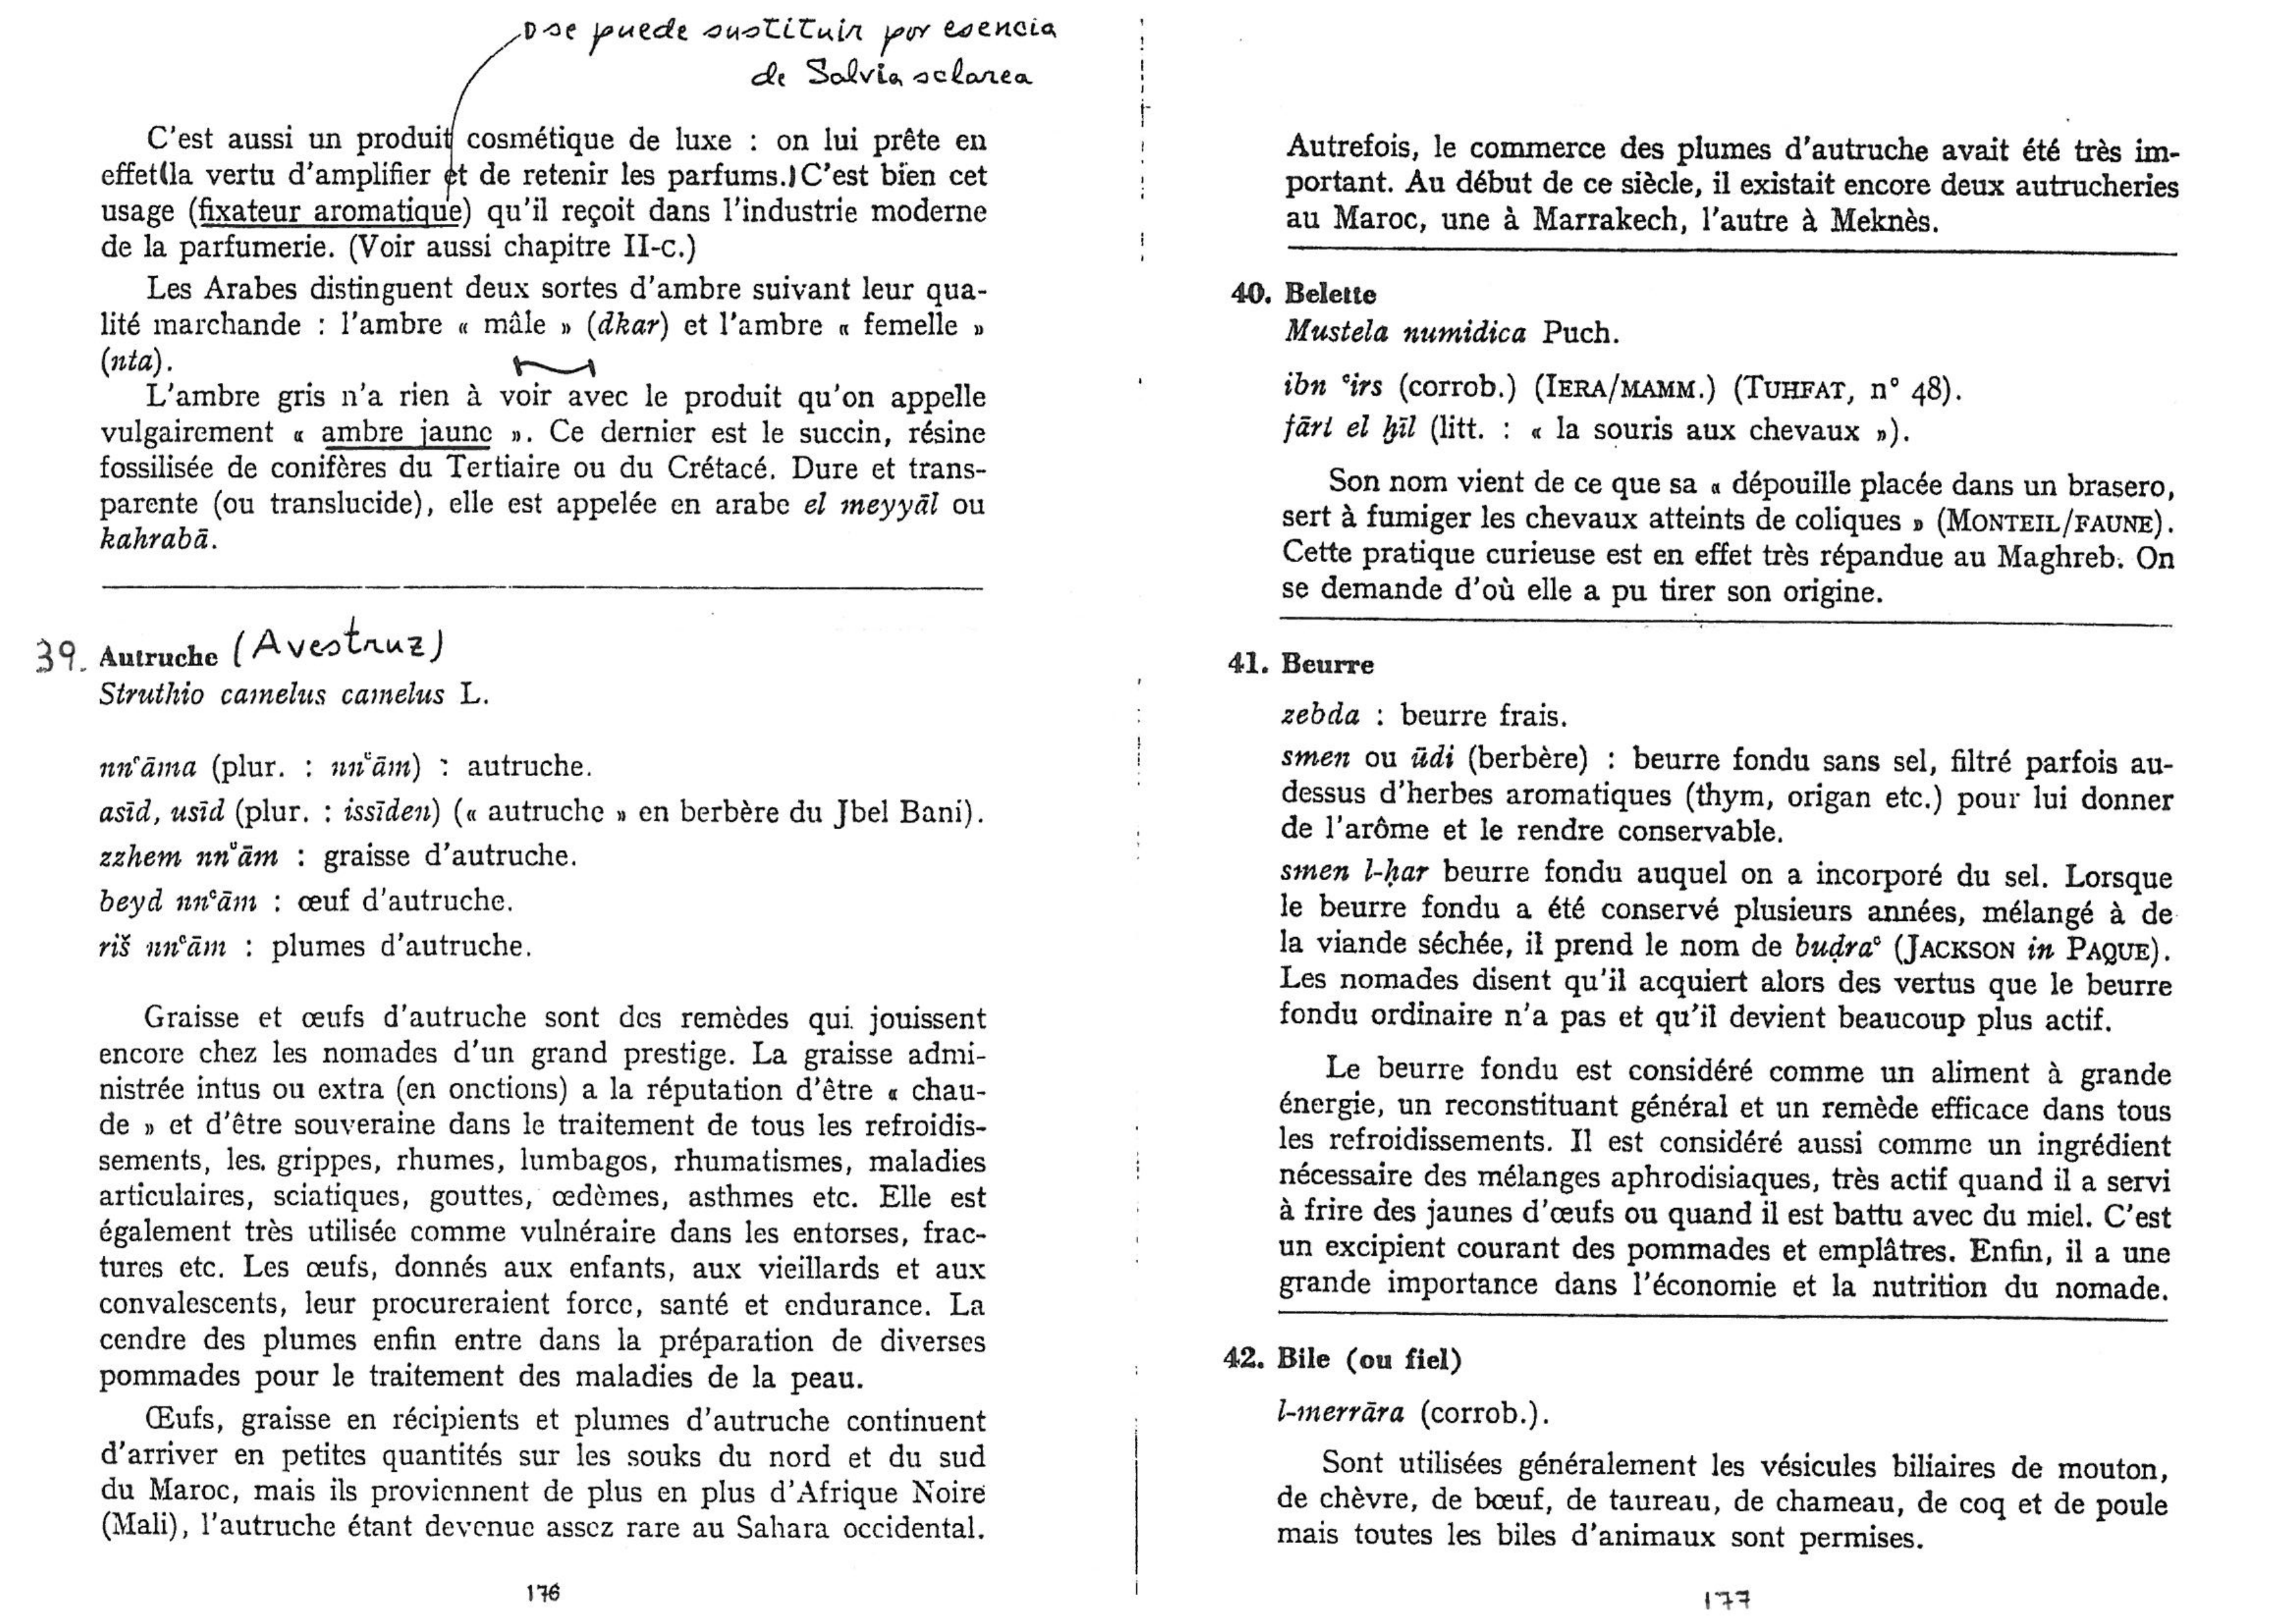 se puede sustituir por esencia
de Salvia sclarea
C'est aussi un produit cosmétique de luxe : on lui prête en
effet (la vertu d'amplifier et de retenir les parfums.) C'est bien cet
usage (fixateur aromatique) qu'il reçoit dans l'industrie moderne
de la parfumerie. (Voir aussi chapitre II-c.)
Les Arabes distinguent deux sortes d'ambre suivant leur qua-
lité marchande : l'ambre « mâle » (dkar) et l'ambre « femelle »
(nta).
L'ambre gris n'a rien à voir avec le produit qu'on appelle
vulgairement « ambre jaune ». Ce dernier est le succin, résine
fossilisée de conifères du Tertiaire ou du Crétacé. Dure et trans-
parente (ou translucide), elle est appelée en arabe el meyyāl ou
kahrabā.
39. Autruche (Avestruz)
Struthio camelus camelus L.
nnʿāma (plur. : nnʿām) : autruche.
asīd, usīd (plur. : issīden) (« autruche » en berbère du Jbel Bani).
zzhem nnʿām : graisse d'autruche.
beyd nnʿām : œuf d'autruche.
riš nnʿām : plumes d'autruche.
Graisse et œufs d'autruche sont des remèdes qui jouissent
encore chez les nomades d'un grand prestige. La graisse admi-
nistrée intus ou extra (en onctions) a la réputation d'être « chau-
de » et d'être souveraine dans le traitement de tous les refroidis-
sements, les. grippes, rhumes, lumbagos, rhumatismes, maladies
articulaires, sciatiques, gouttes, œdèmes, asthmes etc. Elle est
également très utilisée comme vulnéraire dans les entorses, frac-
tures etc. Les œufs, donnés aux enfants, aux vieillards et aux
convalescents, leur procureraient force, santé et endurance. La
cendre des plumes enfin entre dans la préparation de diverses
pommades pour le traitement des maladies de la peau.
Œufs, graisse en récipients et plumes d'autruche continuent
d'arriver en petites quantités sur les souks du nord et du sud
du Maroc, mais ils proviennent de plus en plus d'Afrique Noire
(Mali), l'autruche étant devenue assez rare au Sahara occidental.
176
Autrefois, le commerce des plumes d'autruche avait été très im-
portant. Au début de ce siècle, il existait encore deux autrucheries
au Maroc, une à Marrakech, l'autre à Meknès.
40. Belette
Mustela numidica Puch.
ibn ʿirs (corrob.) (IERA/MAMM.) (TUHFAT, n° 48).
fārt el ḫīl (litt. : « la souris aux chevaux »).
Son nom vient de ce que sa « dépouille placée dans un brasero,
sert à fumiger les chevaux atteints de coliques » (MONTEIL/FAUNE).
Cette pratique curieuse est en effet très répandue au Maghreb. On
se demande d'où elle a pu tirer son origine.
41. Beurre
zebda : beurre frais.
smen ou ūdi (berbère) : beurre fondu sans sel, filtré parfois au-
dessus d'herbes aromatiques (thym, origan etc.) pour lui donner
de l'arôme et le rendre conservable.
smen l-ḥar beurre fondu auquel on a incorporé du sel. Lorsque
le beurre fondu a été conservé plusieurs années, mélangé à de
la viande séchée, il prend le nom de buḍraʿ (JACKSON in PAQUE).
Les nomades disent qu'il acquiert alors des vertus que le beurre
fondu ordinaire n'a pas et qu'il devient beaucoup plus actif.
Le beurre fondu est considéré comme un aliment à grande
énergie, un reconstituant général et un remède efficace dans tous
les refroidissements. Il est considéré aussi comme un ingrédient
nécessaire des mélanges aphrodisiaques, très actif quand il a servi
à frire des jaunes d'œufs ou quand il est battu avec du miel. C'est
un excipient courant des pommades et emplâtres. Enfin, il a une
grande importance dans l'économie et la nutrition du nomade.
42. Bile (ou fiel)
l-merrāra (corrob.).
Sont utilisées généralement les vésicules biliaires de mouton,
de chèvre, de bœuf, de taureau, de chameau, de coq et de poule
mais toutes les biles d'animaux sont permises.
177